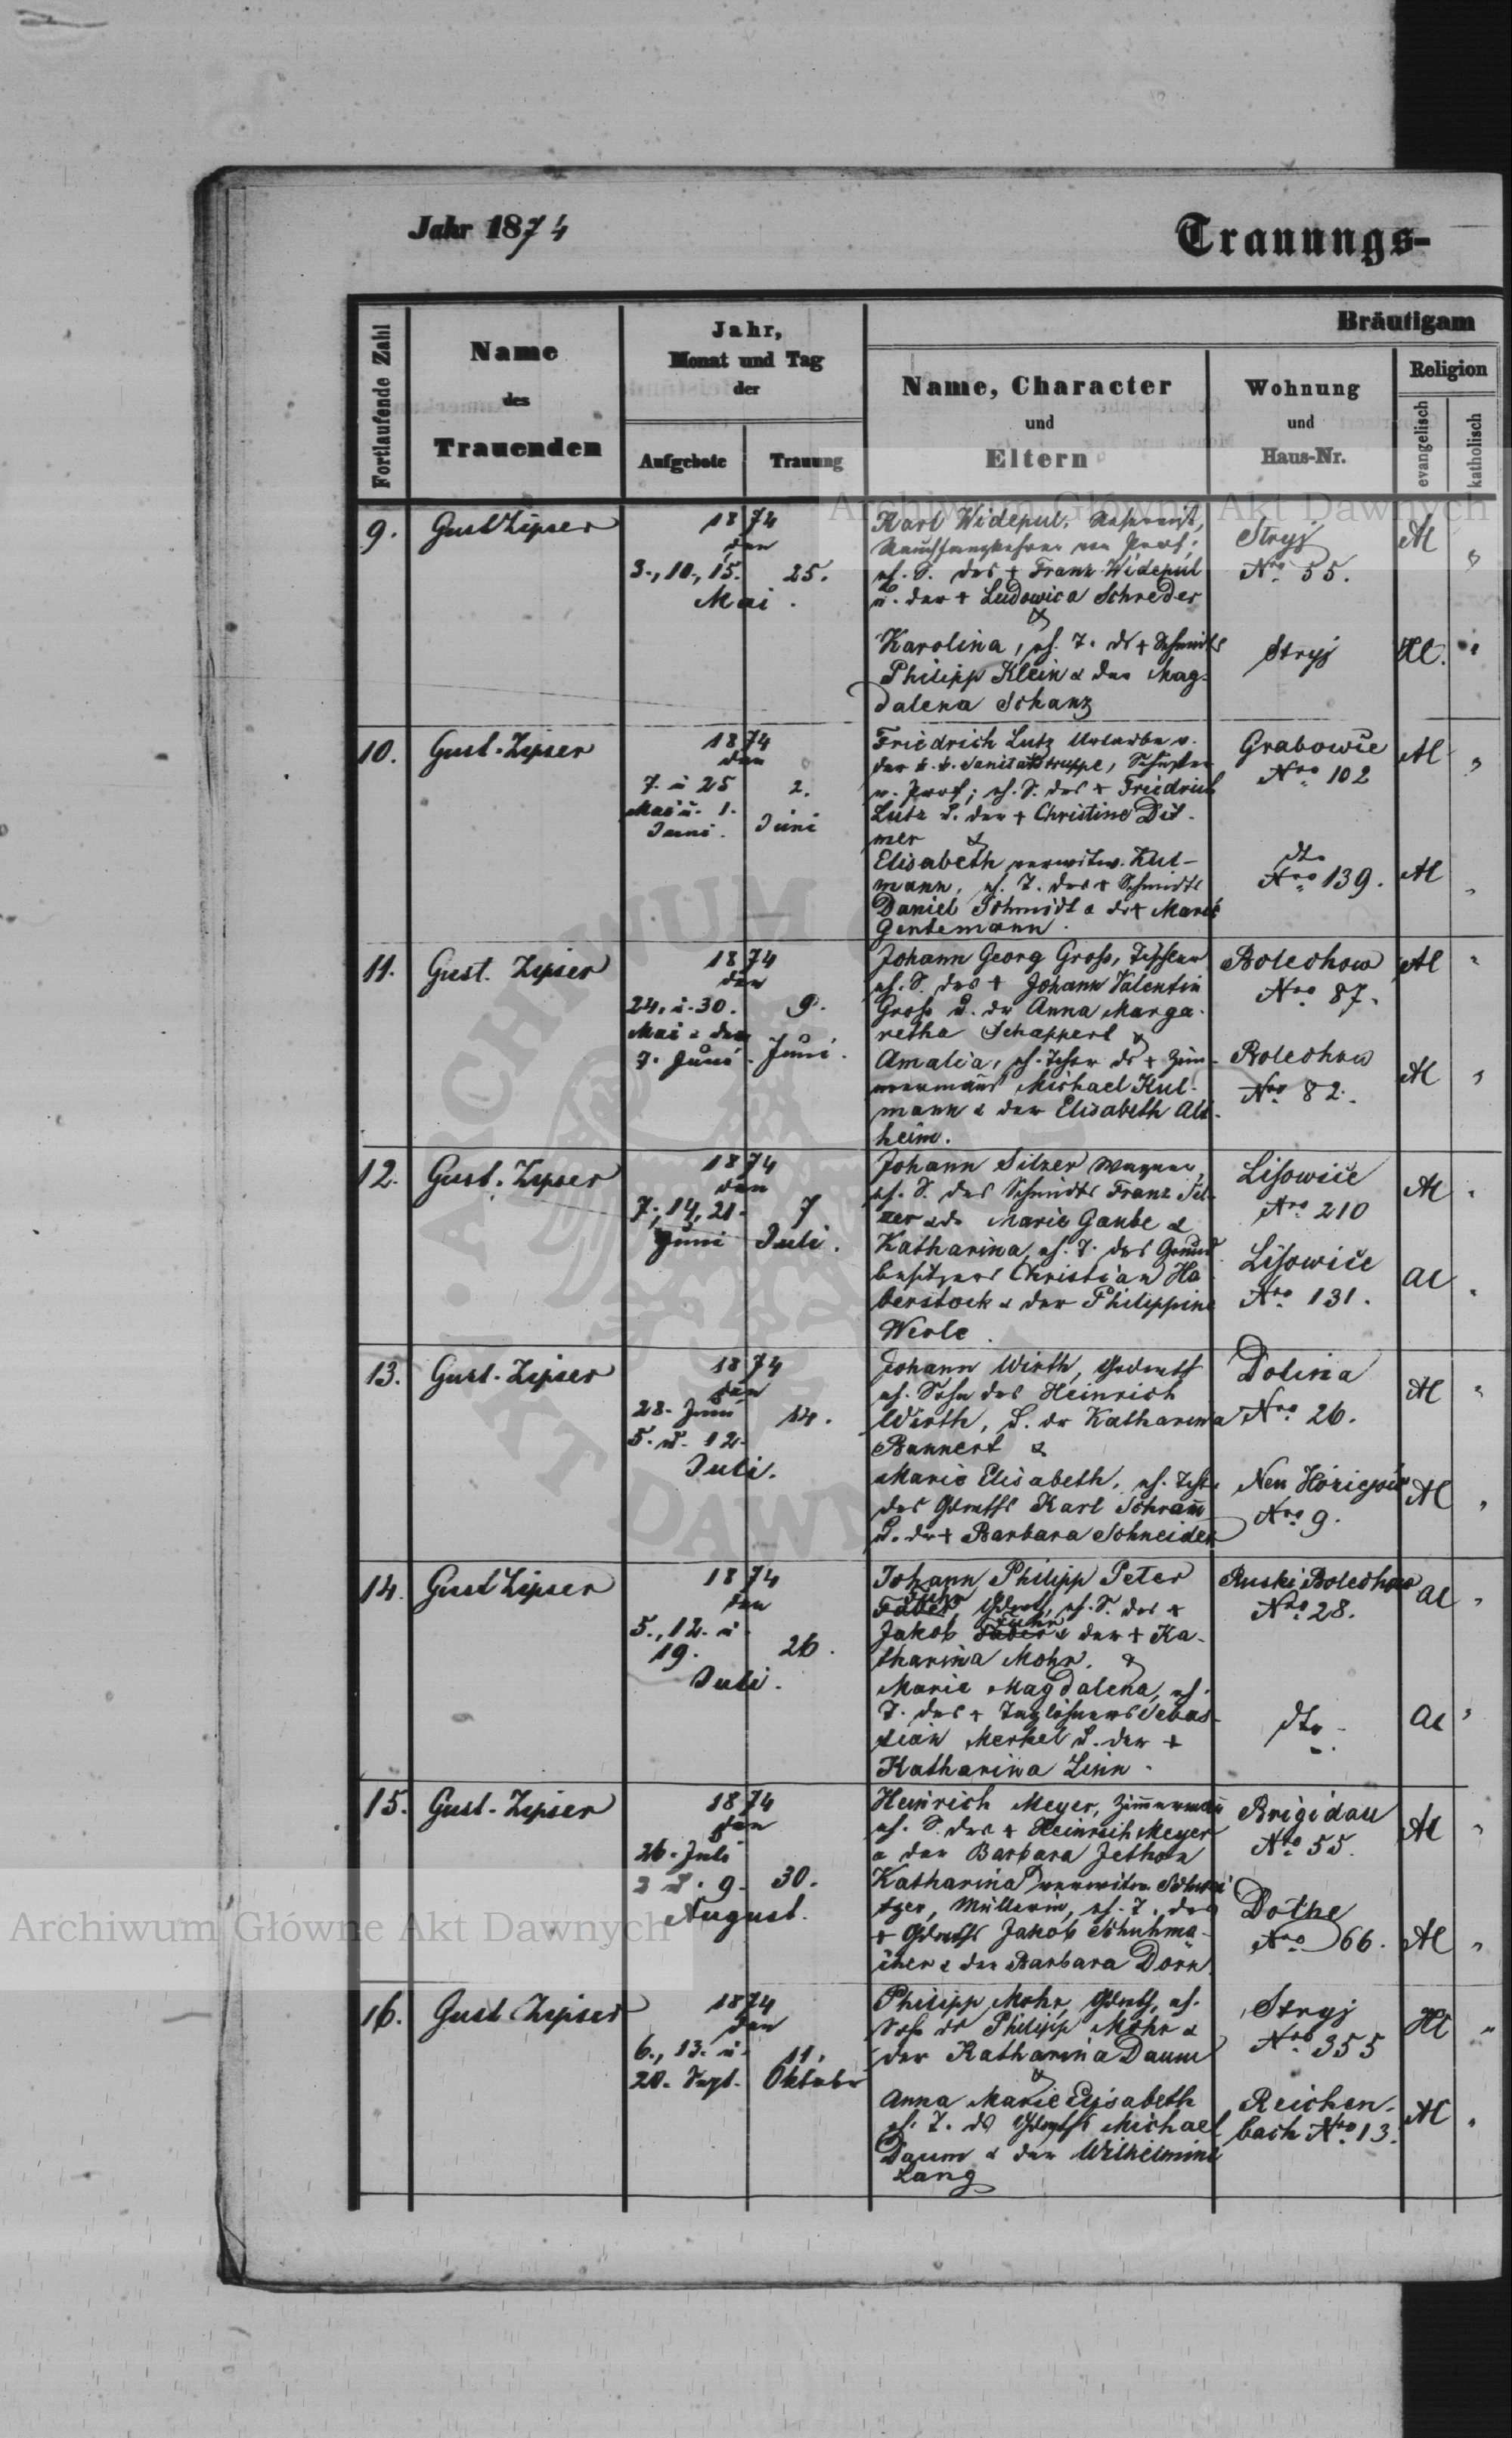 Jahr 1874
Trauungs-
Fortlaufende Zahl
Name
des
Trauenden
Jahr,
Monat und Tag
der
Aufgebote
Trauung
Bräutigam
Name, Character
und
Eltern
Wohnung
und
Haus-Nr.
Religion
evangelisch
katholisch
9.
Gust Zipser
1874
den
3., 10., 15.
25.
Mai.
Karl Widepul,
von Prof;
eh. S. des + Franz Widepul
u. der + Ludowica Schreder
&
Karolina, eh. T. ds + Schmidts
Philipp Klein & der Mag-
dalena Schanz
Stryj
Nro 55.
Stryj
10.
Gust. Zipser
1874
den
7. u 25
Mai u. 1.
Juni.
2.
Juni
Friedrich Lutz
der k. k. Sanitätstruppe, Schuster
v. Prof; eh. S. des + Friedrich
Lutz u. der + Christine Dit-
mer &
Elisabeth verwitw. Kul-
mann, eh. T. des + Schmidts
Daniel Schmidt & dr + Marie
Gentemann.
Grabowce
Nro 102
dto
Nro 139.
11.
Gust. Zipser
1874
den
24. u. 30.
Mai & den
7. Juni.
9.
Juni.
Johann Georg Groß, Tischler
eh. S. des + Johann Valentin
Groß u. der Anna Marga-
retha Schappert &
Amalia, eh. Tochter ds + Zim-
mermanns Michael Kul-
mann & der Elisabeth Alt-
heim.
Bolechow
Nro 87.
Bolechow
Nro 82.
12.
Gust. Zipser
1874
den
7., 14, 21.
Juni
7
Juli.
Johann Silzer Wagner,
eh. S. des Schmidts Franz Sil-
zer & dr Marie Gaube &
Katharina, eh. T. des Grund-
besitzers Christian Ha-
berstock & der Philippine
Werle.
Lisowice
Nro 210
Lisowice
Nro 131.
13.
Gust. Zipser
1874
den
28. Juni
5. u. 12.
Juli.
14.
Johann Wirth, Grdwirth
eh. Sohn des Heinrich
Wirth, u. dr Katharina
Bannert &
Marie Elisabeth, eh. Tocht
des Grdwirths Karl Schram
u. der + Barbara Schneider
Dolina
Nro 26.
Neu
Nro 9.
14.
Gust Zipser
1874
den
5., 12. u
19.
Juli.
26.
Johann Philipp Peter
Faber Grdwirth, eh. S. des +
Jakob Faber & der + Ka-
tharina Mohr. &
Marie Magdalena, eh.
T. des + Taglöhners Sebas-
tian Merkel u. der +
Katharina Linn.
Ruski Bolechow
Nro 28.
dto.
15.
Gust. Zipser
1874
den
26. Juli
2 u. 9.
August.
30.
Heinrich Meyer, Zimmerman
eh. S. des + Heinrich Meyer
& der Barbara Jethon
Katharina verwitw. Schwei
tzer, Müllerin, eh. T. des
+ Grdwirths Jakob Schuhma-
cher & der Barbara Dörn
Brigidau
Nro 55.
Dothe
Nro 66.
16.
Gust Zipser
1874
den
6., 13. u.
20. Sept.
11.
Oktober
Philipp Mohr, Grdwirth, eh.
Sohn ds Philipp Mohr &
der Katharina Daum
&
Anna Marie Elisabeth
eh. T. ds Grdwirths Michael
Daum & der Wilhelmine
Lang
Stryj
Nro 355
Reichen-
bach Nro 13.
Archiwum Główne Akt Dawnych
Archiwum Główne Akt Dawnych